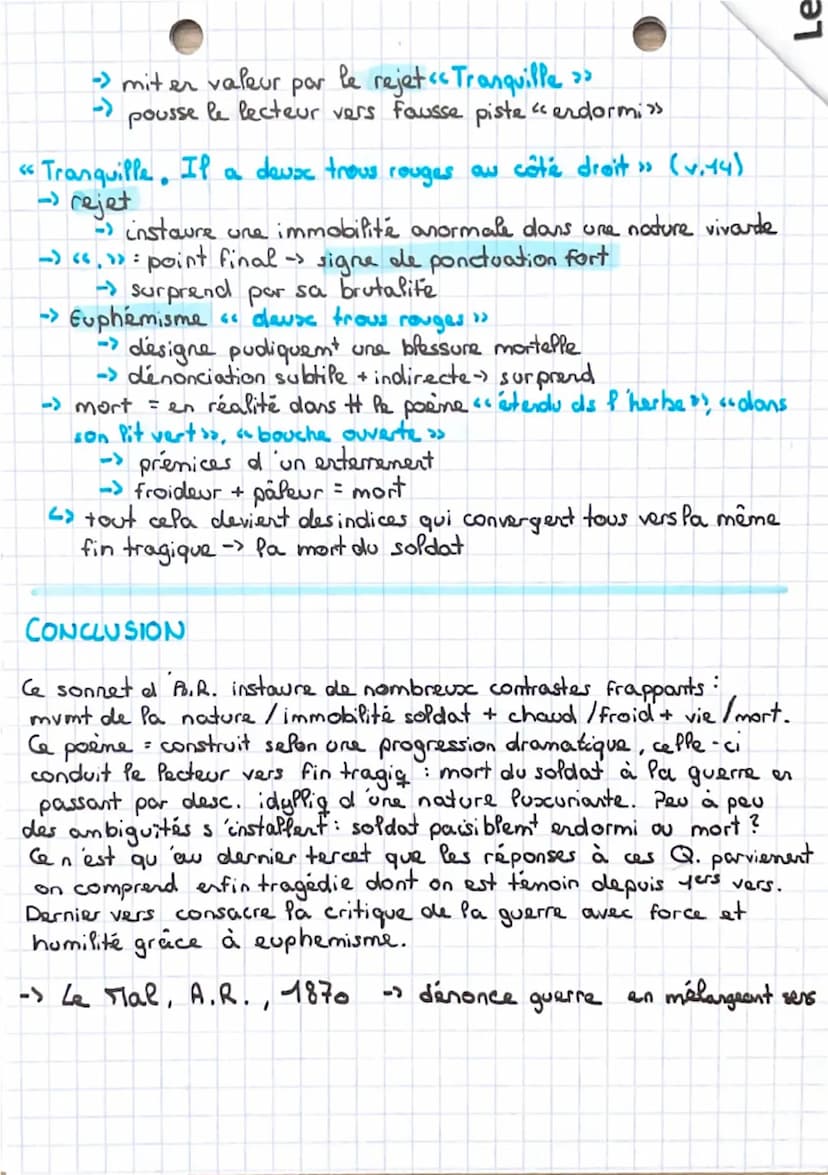 Le
-> mit en valeur par le rejet « Tranquille »
-> pousse le lecteur vers fausse piste « endormi »
« Tranquille. Il a deux trous rouges au côté droit » (v.14)
-> rejet
-> instaure une immobilité anormale dans une nature vivante
-> « . » : point final -> signe de ponctuation fort
-> surprend par sa brutalité
-> Euphémisme « deux trous rouges »
-> désigne pudiquemt une blessure mortelle
-> dénonciation subtile + indirecte -> surprend
-> mort = en réalité dans tt le poème « étendu ds l'herbe », « dans
son lit vert », « bouche ouverte »
-> prémices d'un enterrement
-> froideur + pâleur = mort
↳ tout cela devient des indices qui convergent tous vers la même
fin tragique -> la mort du soldat
CONCLUSION
Ce sonnet d'A.R. instaure de nombreux contrastes frappants :
mvmt de la nature / immobilité soldat + chaud / froid + vie / mort.
Ce poème = construit selon une progression dramatique, celle-ci
conduit le lecteur vers fin tragiq : mort du soldat à la guerre en
passant par desc. idylliq d'une nature luxuriante. Peu à peu
des ambiguités s'installent : soldat paisiblemt endormi ou mort ?
Ce n'est qu'au dernier tercet que les réponses à ces Q. parviennent
on comprend enfin tragédie dont on est témoin depuis 1ers vers.
Dernier vers consacre la critique de la guerre avec force et
humilité grâce à euphemisme.
-> Le Mal, A.R., 1870 -> dénonce guerre en mélangeant sens